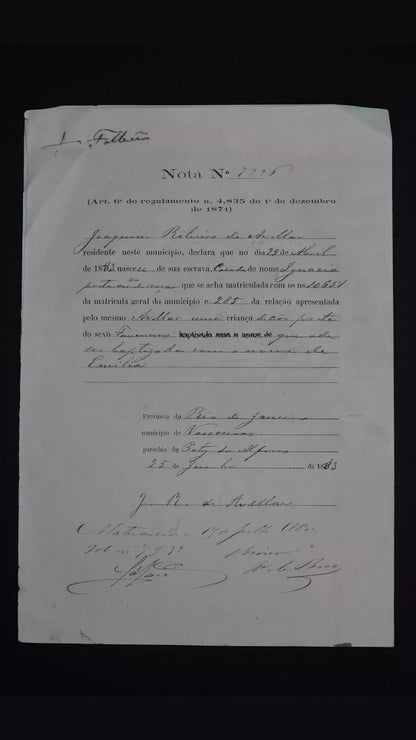 Falleceu
Nota Nº 7226
(Art. 6º do regulamento n. 4,835 do 1º de dezembro
de 1871)
Joaquim Ribeiro de Avellar
residente neste municipio, declara que no dia 29 de Abril
de 1883 nasceu de sua escrava, Casada de nome Ignacia
preta de roca que se acha matriculada com os ns 10651
da matricula geral do municipio e 285 da relação apresentada
pelo mesmo Avellar uma criança de côr preta
do sexo Feminino baptisada com o nome de que
ser baptizada com o nome de
Emilia
Provincia do Rio de Janeiro
municipio de Vassouras
parochia do Paty do Alferes
25 de Junho de 1883
J. R. de Avellar